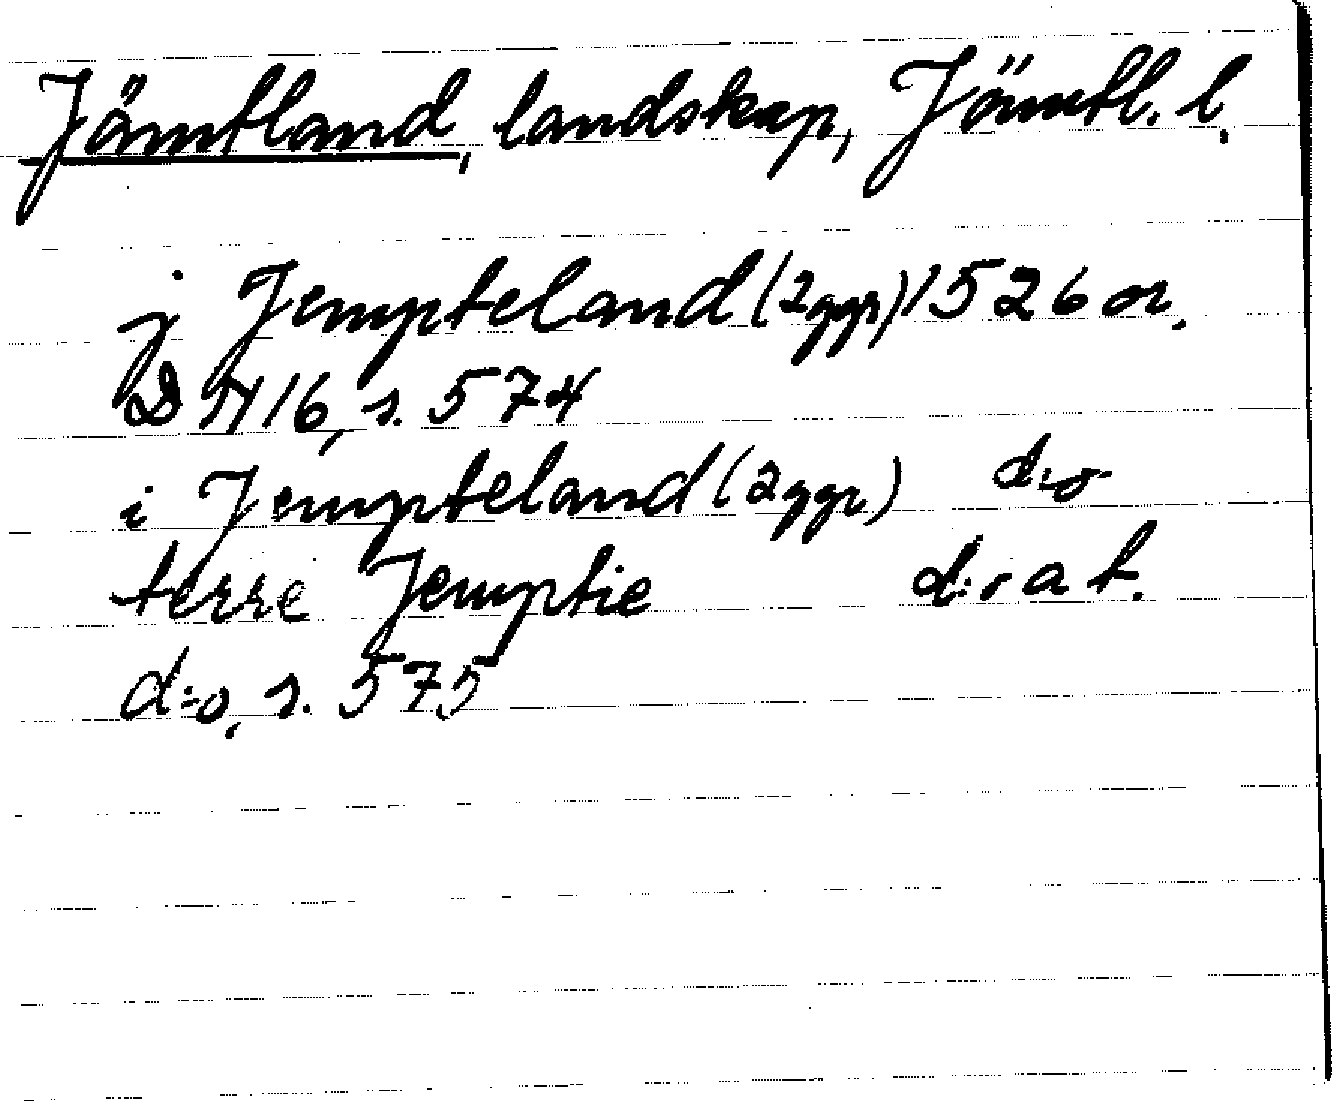 Jämtland, landskap, Jämtl. l.
j Jempteland (2ggr) 1526 or.
DN 16, s. 574
i Jempteland (2ggr) d:o
terre Jemptie d:o a t.
d:o, s. 575